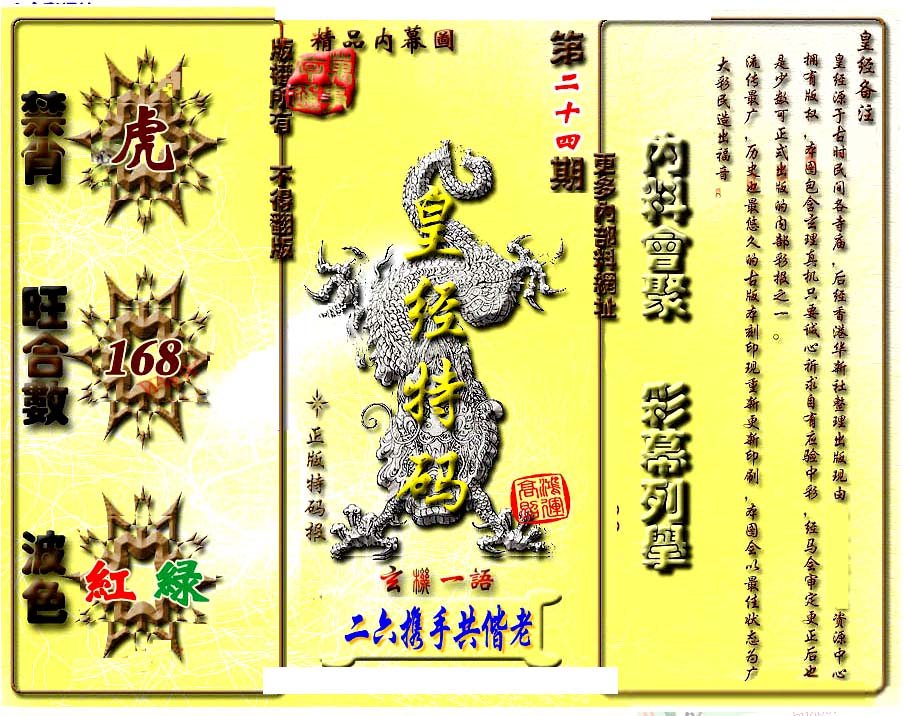 精品內幕圖
第二十四期
版權所有 不得翻版
更多內部料網址
禁肖
虎
旺合數
168
波色
紅 綠
皇经特码
正版特码报
鴻運高照
玄機一語
二六攜手共偕老
內料會聚 彩幕列舉
皇经备注
皇经源于古时民间各寺庙，后经香港华新社整理出版现由 资源中心
拥有版权，本图包含玄理真机只要诚心祈求自有应验中彩，经马会审定更正后也
是少数可正式出版的内部彩报之一。
流传最广，历史也最悠久的古版本刻印现重新更新印刷，本图会以最佳状态为广
大彩民造出福音